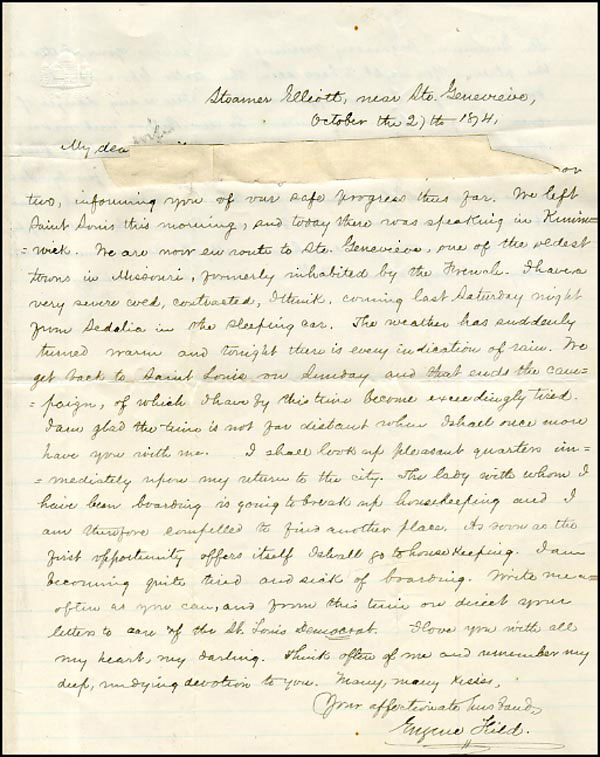 Steamer Elliott, near Ste. Genevieve,
October the 27th 1874,
My dea
or
two, informing you of our safe progress thus far. We left
Saint Louis this morning, and today there was speaking in Kimm=
=wick. We are now en route to Ste. Genevieve, one of the oldest
towns in Missouri, formerly inhabited by the French. I have a
very severe cold, contracted, I think, coming last Saturday night
from Sedalia in the sleeping car. The weather has suddenly
turned warm and tonight there is every indication of rain. We
get back to Saint Louis on Sunday and that ends the cam=
=paign, of which I have by this time become exceedingly tired.
I am glad the time is not far distant when I shall once more
have you with me. I shall look up pleasant quarters im=
=mediately upon my return to the city. The lady with whom I
have been boarding is going to break up housekeeping and I
am therefore compelled to find another place. As soon as the
first opportunity offers itself I shall go to housekeeping. I am
becoming quite tired and sick of boarding. Write me as
often as you can, and from this time on direct your
letters to care of the St. Louis Democrat. I love you with all
my heart, my darling. Think often of me and remember my
deep, undying devotion to you. Many, many kisses,
Your affectionate husband,
Eugene Field.